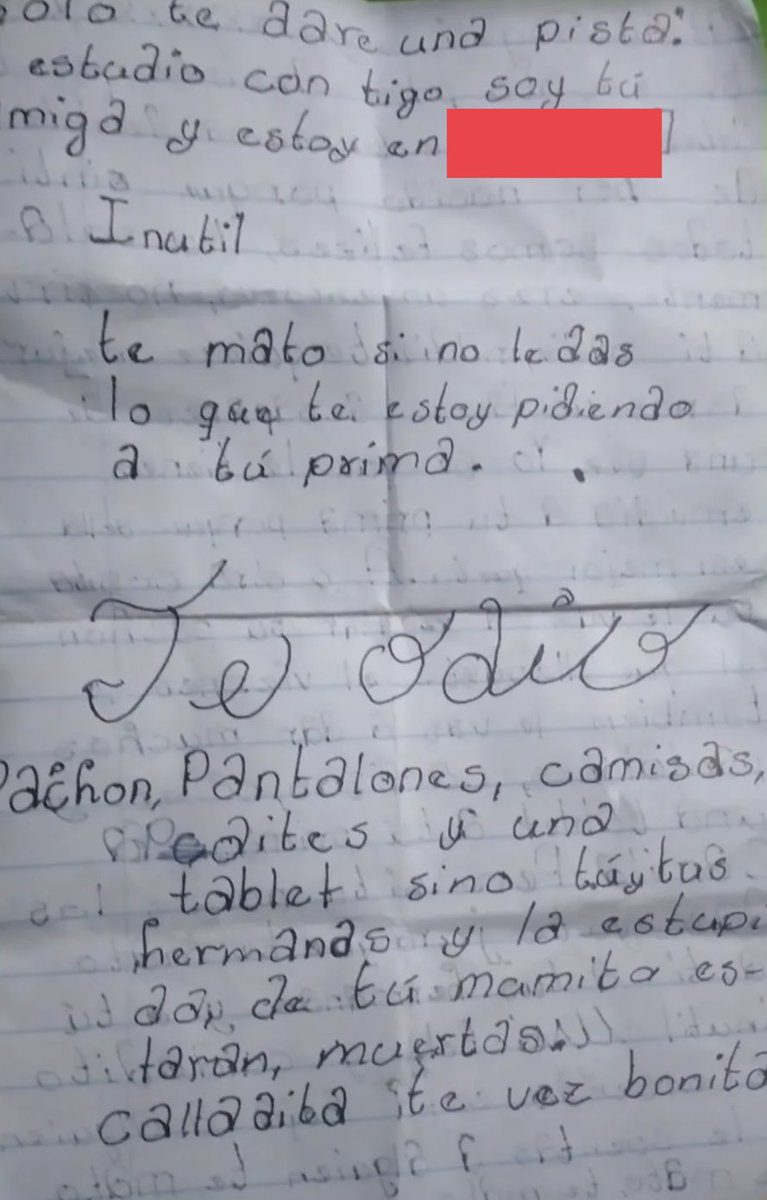 solo te dare una pista:
estudio con tigo, soy tú
miga y estoy en
Inutil
te mato si no le das
lo que te estoy pidiendo
a tú prima.
Te odio
Pachon, Pantalones, camisas,
y una
tablet sino tú y tus
hermanas y la estupi
day de tú mamita es-
taran, muertas!!!
calladita te vez bonita